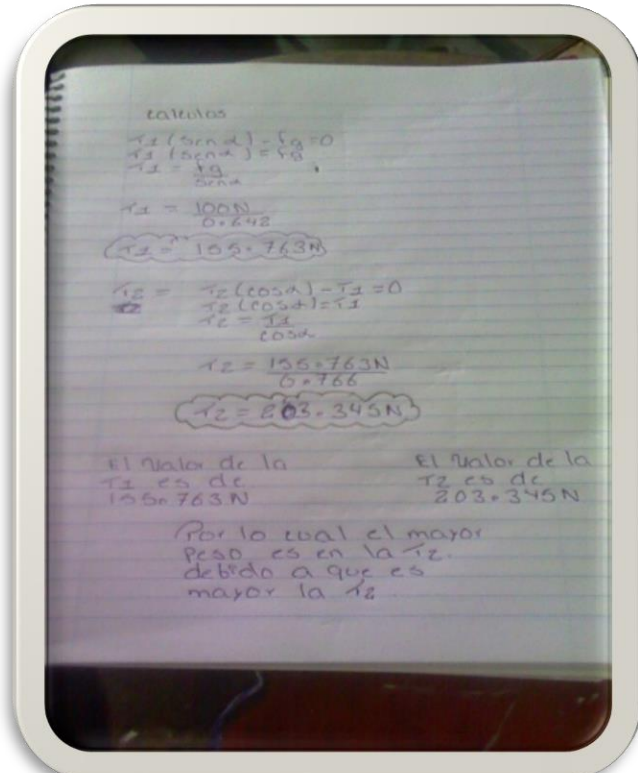 calculos
T1 (sen α) - fg = 0
T1 (sen α) = fg
T1 = fg
senα
T1 = 100N
0.642
T1 = 155.763N
T2 = T2 (cosα) - T1 = 0
T2 (cosα) = T1
T2 = T1
cosα
T2 = 155.763N
0.766
T2 = 203.345N
El valor de la
T1 es de
155.763N
El valor de la
T2 es de
203.345N
Por lo cual el mayor
peso es en la T2.
debido a que es
mayor la T2